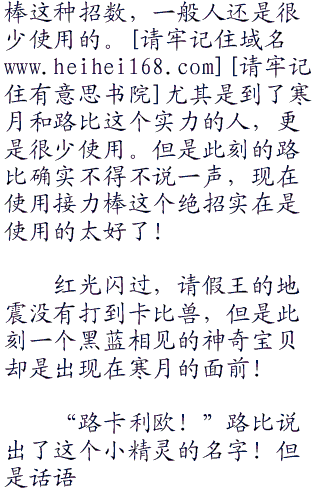 棒这种招数，一般人还是很
少使用的。[请牢记住域名
www.heihei168.com][请牢记
住有意思书院]尤其是到了寒
月和路比这个实力的人，更
是很少使用。但是此刻的路
比确实不得不说一声，现在
使用接力棒这个绝招实在是
使用的太好了！
红光闪过，请假王的地
震没有打到卡比兽，但是此
刻一个黑蓝相见的神奇宝贝
却是出现在寒月的面前！
“路卡利欧！”路比说
出了这个小精灵的名字！但
是话语